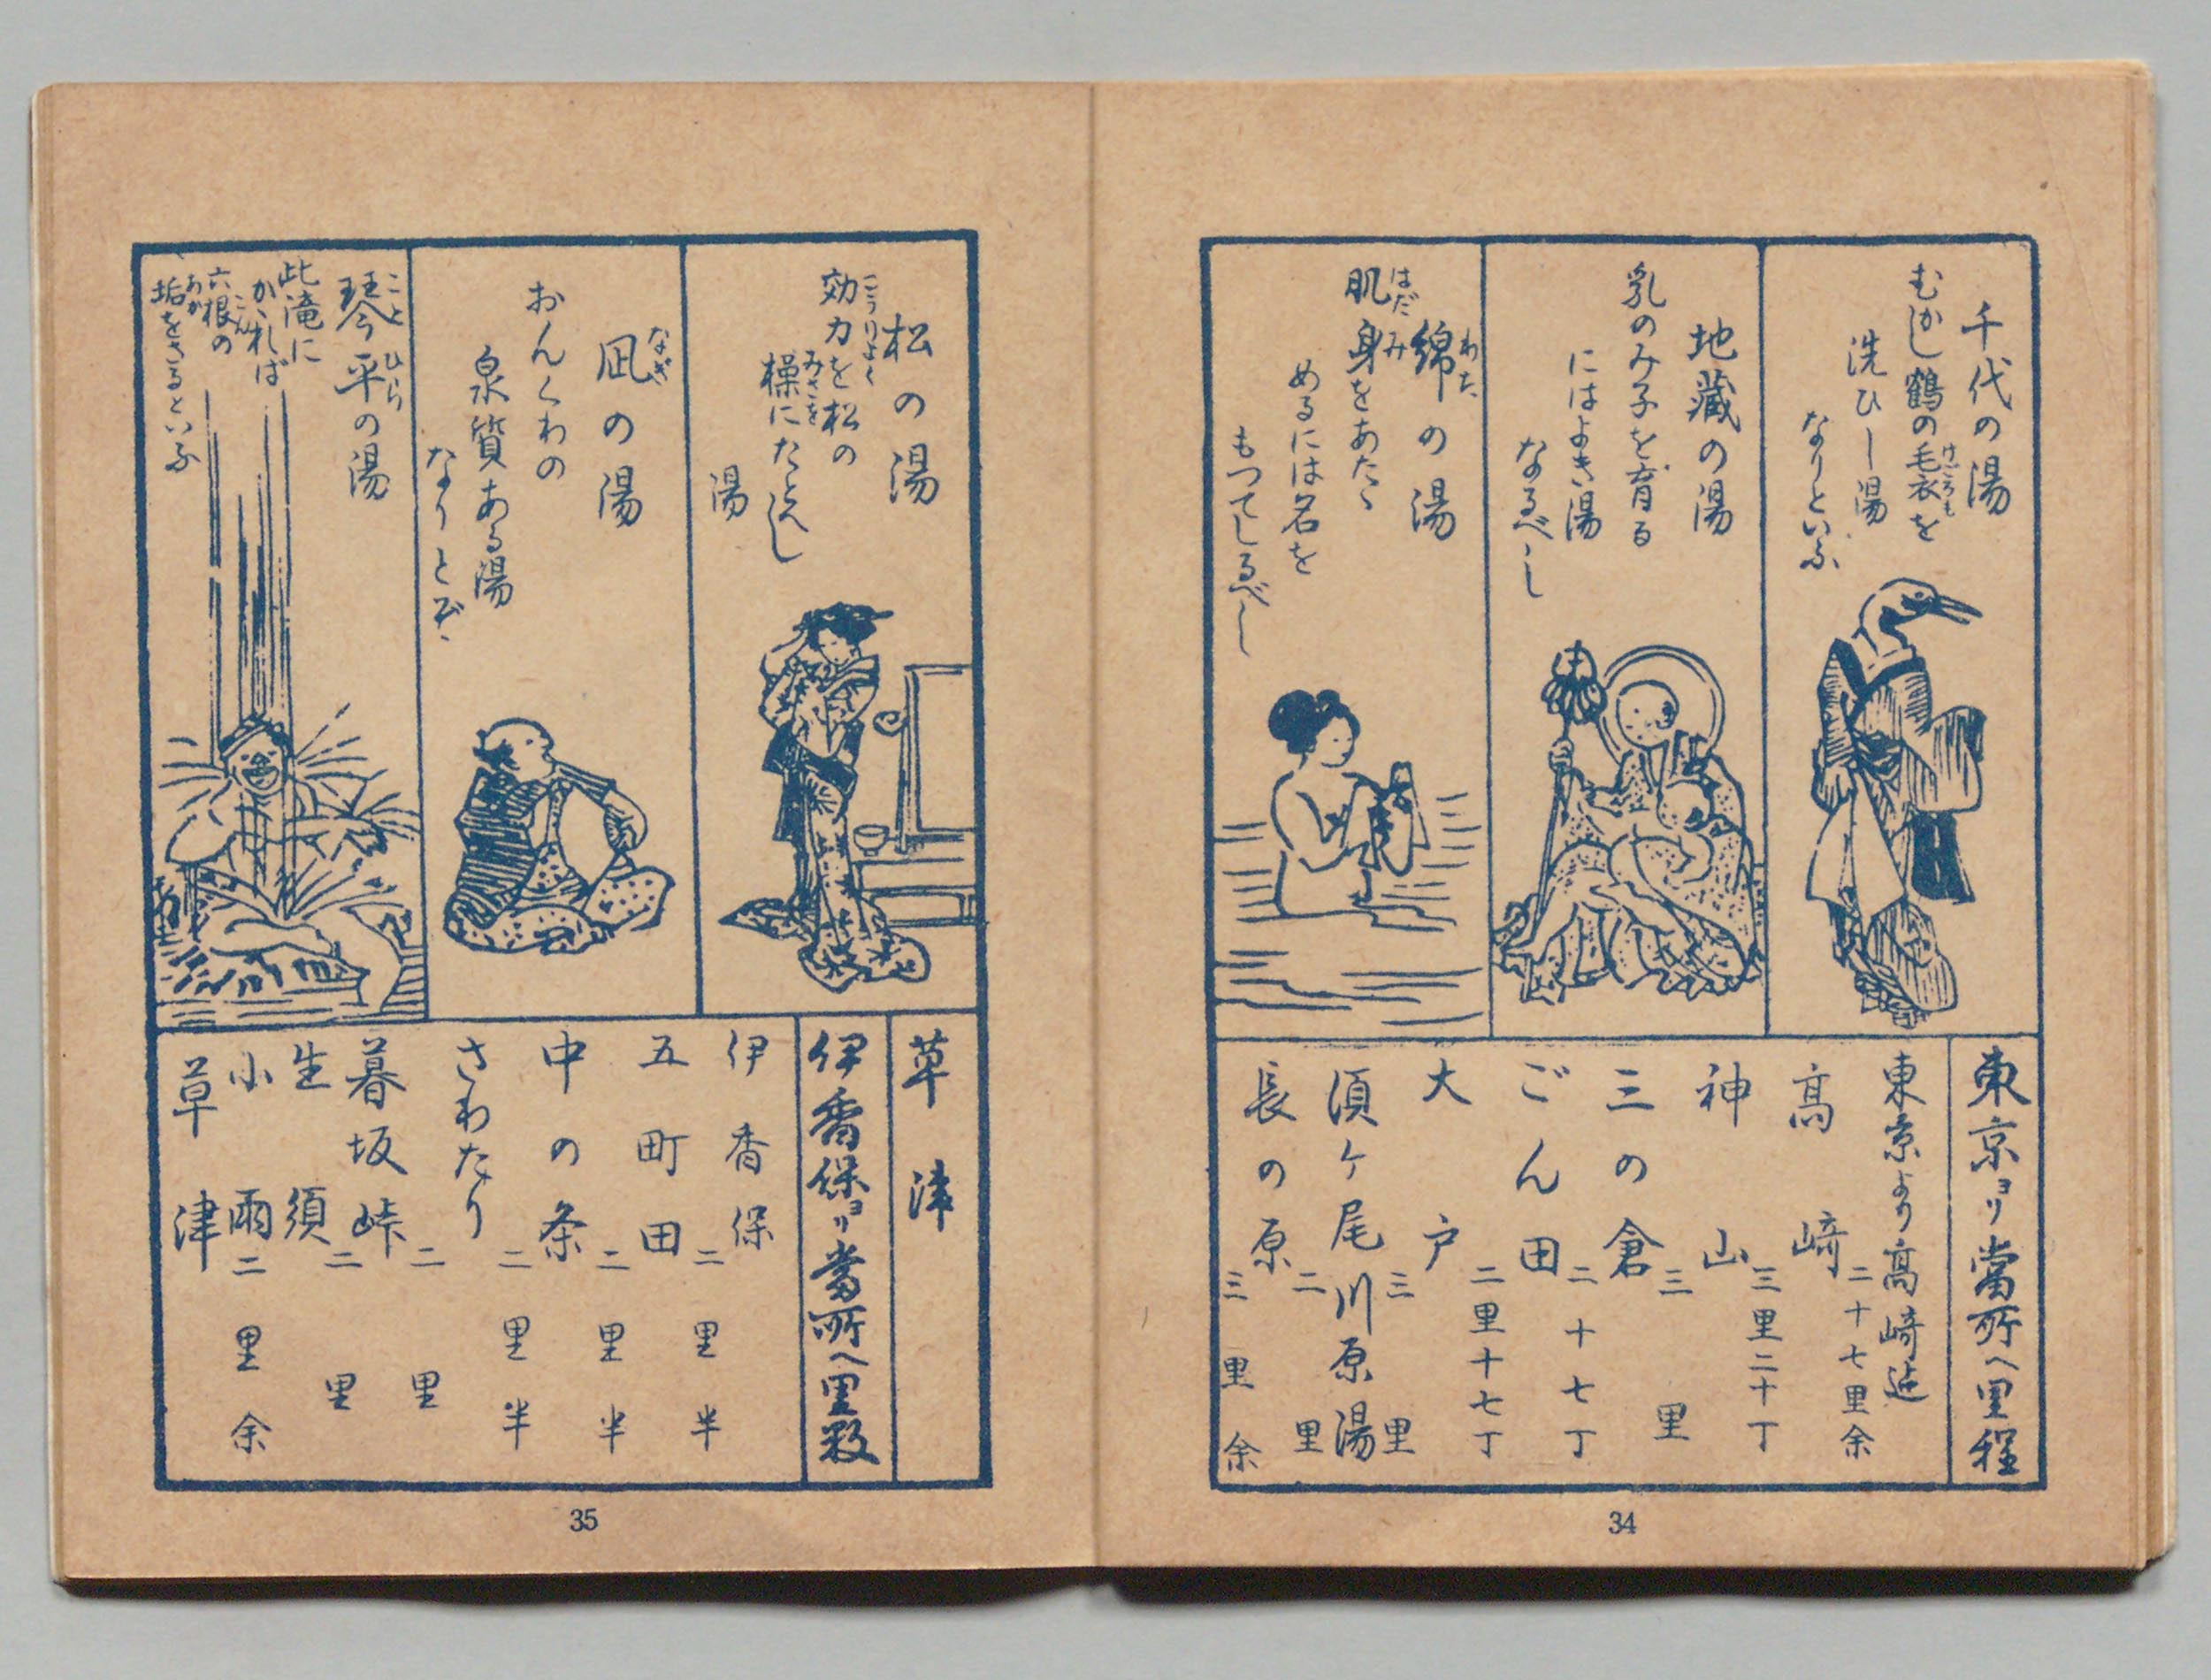 千代の湯
むかし鶴の毛衣を
けごろも
洗ひし湯
なりといふ
地藏の湯
乳のみ子を育る
にはよき湯
なるべし
綿の湯
わた
肌身をあたゝ
はだみ
めるには名を
もつてしるべし
東京ヨリ當所へ里程
東京より髙﨑迠
二十七里余
髙﨑
三里二十丁
神山
三里
三の倉
二十七丁
ごん田
二里十七丁
大戸
三里
須ヶ尾川原湯
二里
長の原
三里余
34
松の湯
効力を松の
こうりよく
操にたとへし
みさを
湯
凪の湯
なぎ
おんくわの
泉質ある湯
なりとぞ
琴平の湯
ことひら
此滝に
かゝれば
六根の
こん
垢をさるといふ
あか
草津
伊香保ヨリ當所へ里数
伊香保
二里半
五町田
二里半
中の条
二里半
さわたり
二里
暮坂峠
二里
生須
小雨
二里余
草津
35